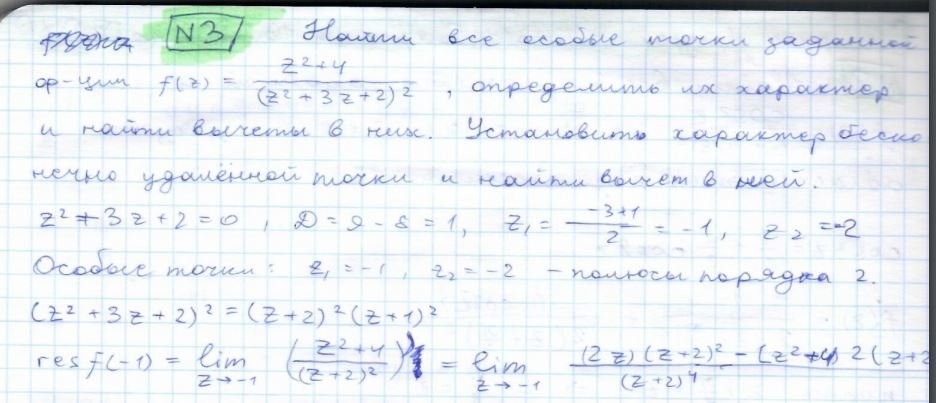 N3 Найти все особые точки заданной
ф-ции f(z) = (z²+4)/(z²+3z+2)², определить их характер
и найти вычеты в них. Установить характер беско
нечно удалённой точки и найти вычет в ней.
z²+3z+2=0, D=9-8=1, z₁ = (-3+1)/2 = -1, z₂ = -2
Особые точки: z₁=-1, z₂=-2 - полюсы порядка 2.
(z²+3z+2)² = (z+2)²(z+1)²
res f(-1) = lim z→-1 ((z²+4)/(z+2)²)' = lim z→-1 ((2z)(z+2)² - (z²+4) 2(z+2)/(z+2)⁴